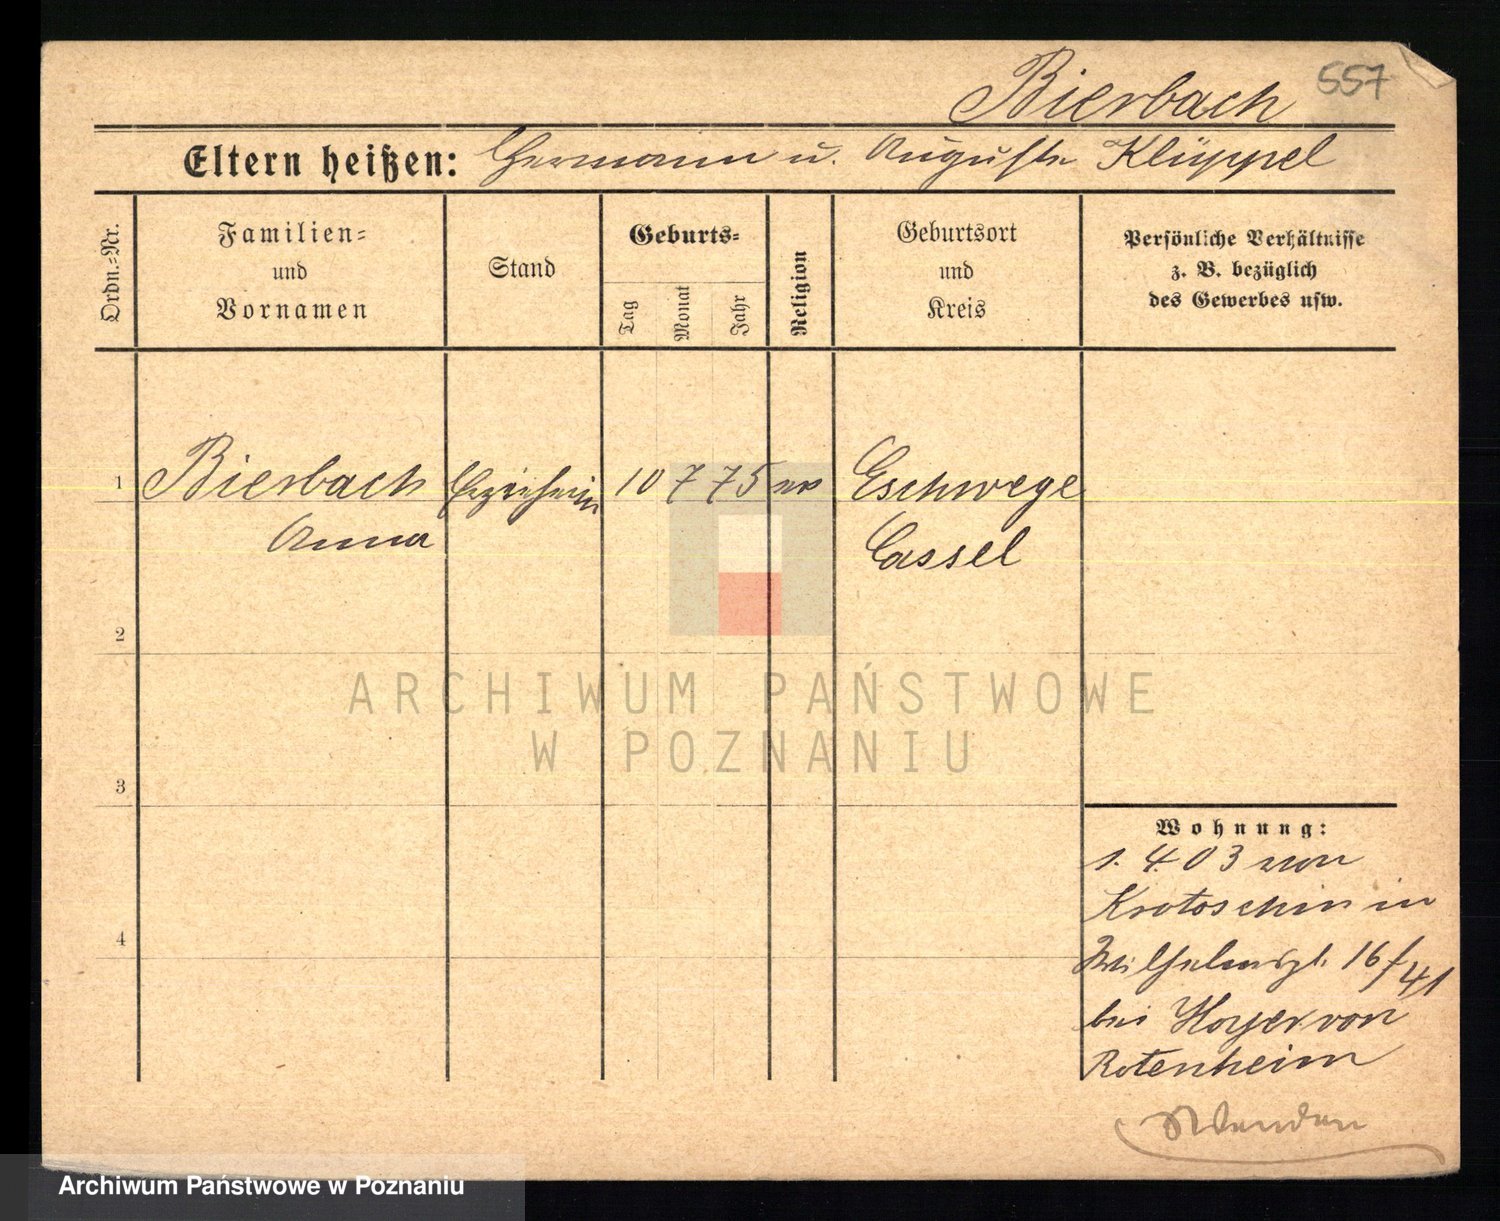 557
Bierbach
Eltern heißen: Hermann u. Auguste Klüppel
Ordn.=Nr.
Familien=
und
Vornamen
Stand
Geburts=
Tag
Monat
Jahr
Religion
Geburtsort
und
Kreis
Persönliche Verhältnisse
z. B. bezüglich
des Gewerbes usw.
1 Bierbach Erzieherin 10 7 75 ev Eschwege
Anna Cassel
2
3
4
ARCHIWUM PAŃSTWOWE
W POZNANIU
Wohnung:
1. 4. 03 von
Krotoschin in
Wilhelmspl. 16/41
bei Hoyer von
Rotenheim
Wenden
Archiwum Państwowe w Poznaniu